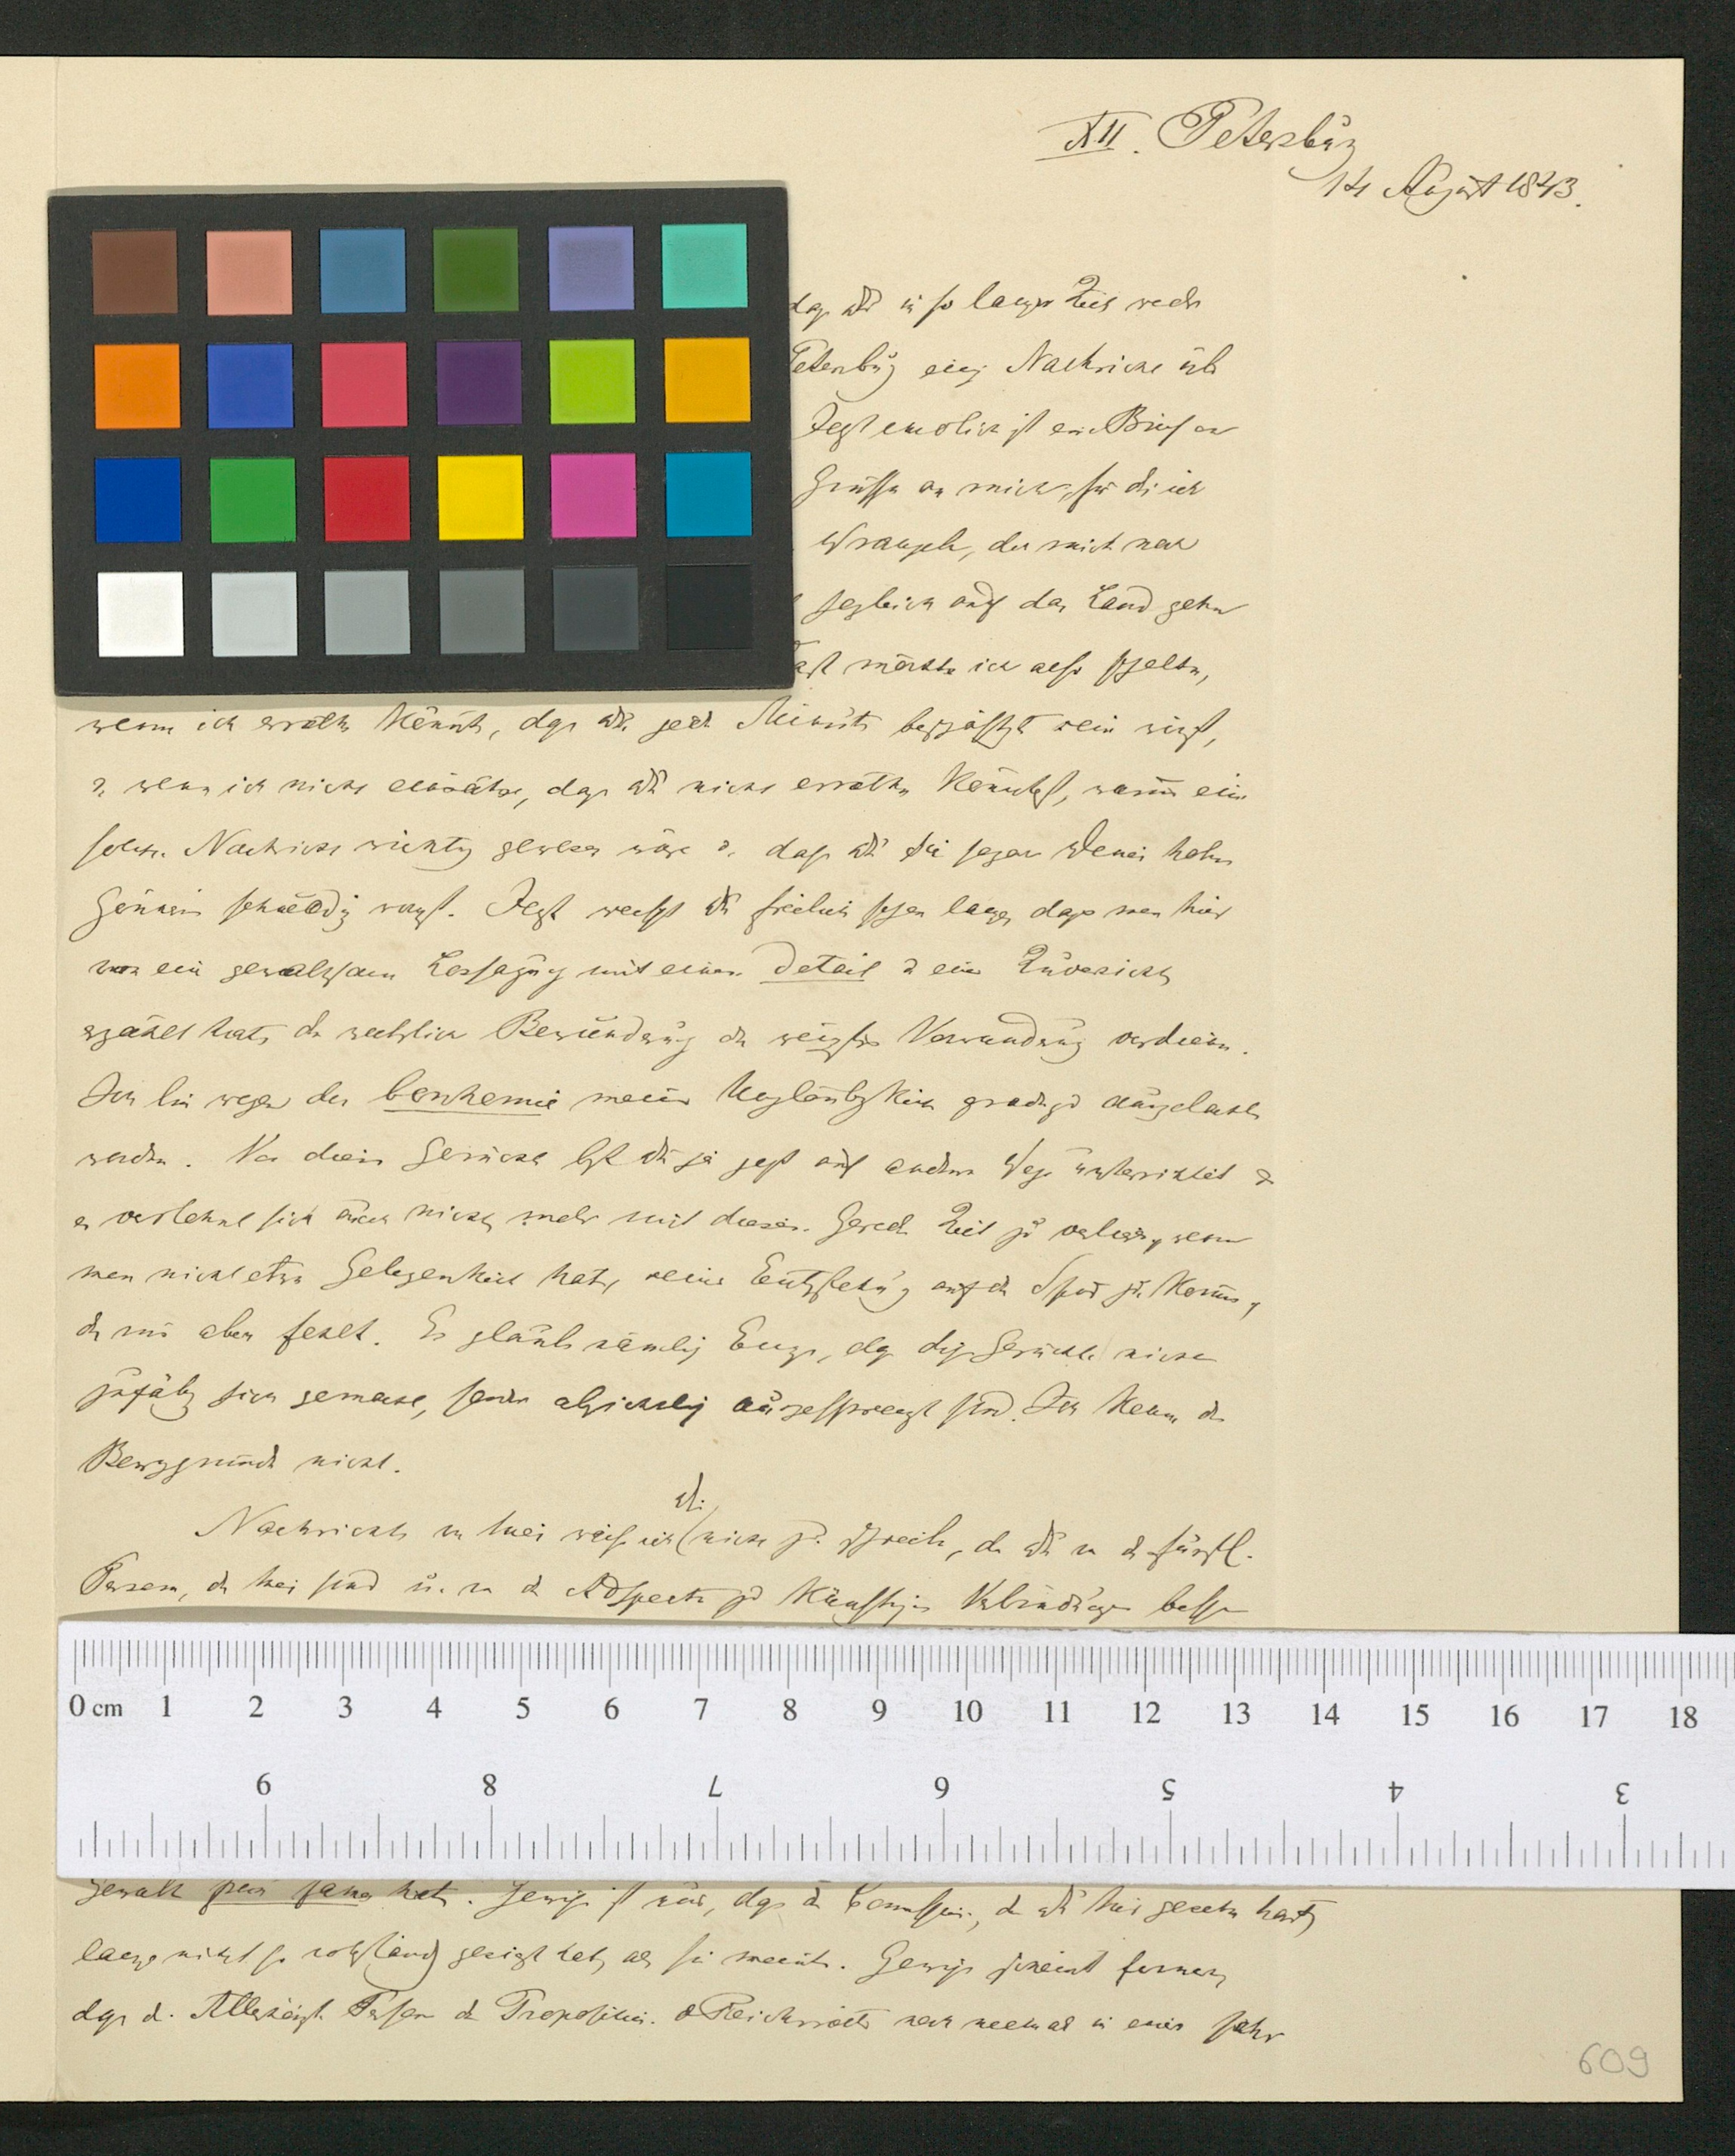 XII. Petersburg
14 August 1843.
daß Du in so langer Zeit weder
Petersburg einige Nachricht über
Jetzt endlich ist ein Brief an
Grüsse an mich, für die ich
Wrangell, der mich nach
sogleich auf das Land gehn
Fast möchte ich also schelten,
wenn ich errathen könnte, daß Du jede Minute beschäftigt sein wirst,
u. wenn ich nicht daß Du nicht errathen könntest, warum eine
solche Nachricht wichtig gewesen wäre u. daß Du sie sogar Deinen hohen
Gönnern schuldig warst. Jetzt weißt Du freilich schon lange, daß man hier
von ein gewaltsamen mit einem Detail u. einer Zuversicht
erzählt hat, die wahrlich Bewunderung od. wenigstens Verwunderung verdienen.
Ich bin wegen der bonhomie meiner Ungläubigkeit geradezu ausgelacht
worden. Von diesen Gerüchten bist Du ja jetzt auf anderm Wege unterrichtet u.
es verlohnt sich auch nicht mehr mit diesem Gerede Zeit zu verlieren, wenn
man nicht etwa Gelegenheit hat, seiner Entstehung auf die Spur zu kommen,
die mir aber fehlt. Es glauben nämlich Einige, daß diese Gerüchte nicht
zufällig sich gemacht, sondern absichtlich ausgesprengt sind. Ich kenne die
Beweggründe nicht.
Nachrichten von hier weiß ich Dir nicht zu schreiben, da Du von den fürstl.
Personen, die hier sind u. von den Adspecten zu künftigen Verbindungen besser
0 cm 1 2 3 4 5 6 7 8 9 10 11 12 13 14 15 16 17 18
9 8 7 6 5 4 3
Gewalt hat. Gewiß ist nur, daß die Commission, die Du hier gesehen hast,
lange nicht so gesiegt hat, als sie meinte. Gewiß scheint ferner,
daß d. Allerhöchste Person die Proposition d. Reichsraths noch in einer sehr
609